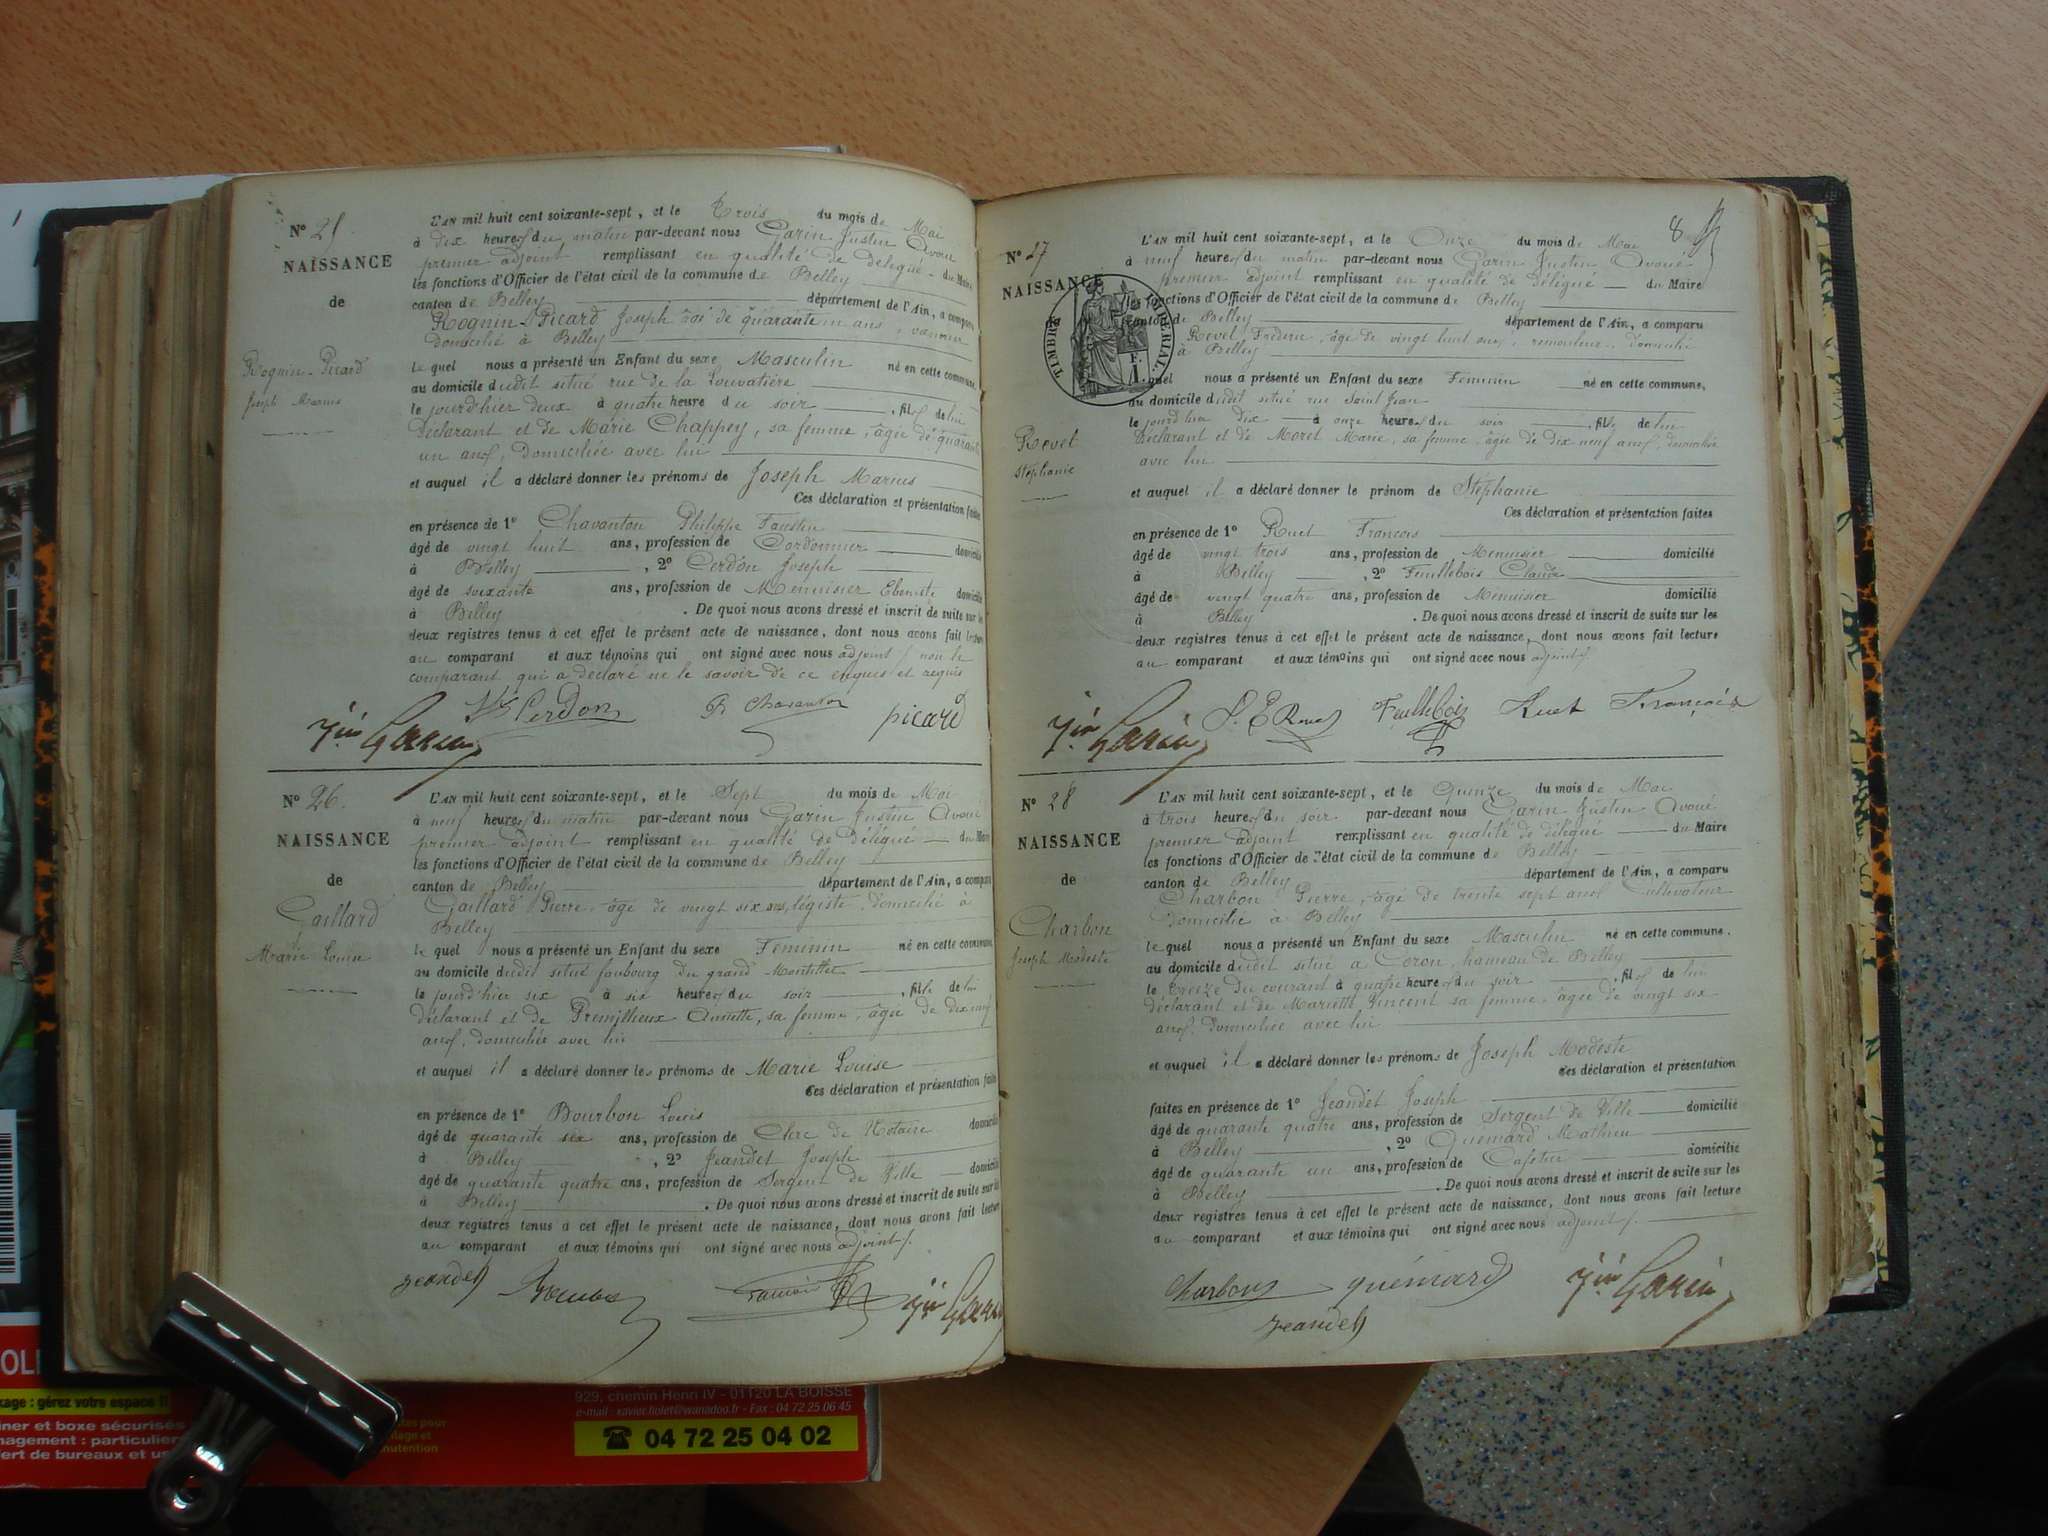 N° 25
NAISSANCE
de
Rognin-Picard
Joseph Marius
L'AN mil huit cent soixante-sept, et le Trois du mois de Mai
à dix heures du matin par-devant nous Garin Justin Avoué
premier adjoint remplissant en qualité de délégué du Maire
les fonctions d'Officier de l'état civil de la commune de Belley
canton de Belley département de l'Ain, a comparu
Rognin-Picard Joseph âgé de quarante un ans, vannier
domicilié à Belley
le quel nous a présenté un Enfant du sexe Masculin né en cette commune,
au domicile dudit situé rue de la Louvatière
le jourd'hier deux à quatre heure du soir, fils de lui
déclarant et de Marie Chappey, sa femme, âgée de quarante
un ans, domiciliée avec lui
et auquel il a déclaré donner les prénoms de Joseph Marius
Ces déclaration et présentation faites
en présence de 1° Chavanton Philippe Faustin
âgé de vingt huit ans, profession de Cordonnier domicilié
à Belley, 2° Cerdon Joseph
âgé de soixante ans, profession de Menuisier Ebeniste domicilié
à Belley. De quoi nous avons dressé et inscrit de suite sur les
deux registres tenus à cet effet le présent acte de naissance, dont nous avons fait lecture
au comparant et aux témoins qui ont signé avec nous adjoint non le
comparant qui a déclaré ne le savoir de ce enquis et requis
Jin Garin Cerdon P Chavanton picard
N° 26.
NAISSANCE
de
Gaillard
Marie Louise
L'AN mil huit cent soixante-sept, et le Sept du mois de Mai
à neuf heures du matin par-devant nous Garin Justin Avoué
premier adjoint remplissant en qualité de délégué du Maire
les fonctions d'Officier de l'état civil de la commune de Belley
canton de Belley département de l'Ain, a comparu
Gaillard Pierre, âgé de vingt six ans, légiste, domicilié à
Belley
le quel nous a présenté un Enfant du sexe Féminin né en cette commune,
au domicile dudit situé faubourg du grand
le jourd'hier six à six heures du soir, fille de lui
déclarant et de Premilheux Annette, sa femme, âgée de dix neuf
ans, domiciliée avec lui
et auquel il a déclaré donner les prénoms de Marie Louise
Ces déclaration et présentation faites
en présence de 1° Bourbon Louis
âgé de quarante six ans, profession de Clerc de Notaire domicilié
à Belley, 2° Jeandet Joseph
âgé de quarante quatre ans, profession de Sergent de Ville domicilié
à Belley. De quoi nous avons dressé et inscrit de suite sur les
deux registres tenus à cet effet le présent acte de naissance, dont nous avons fait lecture
au comparant et aux témoins qui ont signé avec nous adjoint
jeandet Jin Garin
8
N° 27
NAISSANCE
TIMBRE IMPÉRIAL
F.
1.
Revel
Stéphanie
L'AN mil huit cent soixante-sept, et le Onze du mois de Mai
à neuf heures du matin par-devant nous Garin Justin Avoué
premier adjoint remplissant en qualité de délégué du Maire
les fonctions d'Officier de l'état civil de la commune de Belley
canton de Belley département de l'Ain, a comparu
Revel Frédéric, âgé de vingt huit ans, remouleur, domicilié
à Belley
quel nous a présenté un Enfant du sexe Féminin né en cette commune,
au domicile dudit situé rue Saint Jean
le jourd'hier dix à onze heures du soir, fille de lui
déclarant et de Moret Marie, sa femme, âgée de dix neuf ans, domiciliée
avec lui
et auquel il a déclaré donner le prénom de Stéphanie
Ces déclaration et présentation faites
en présence de 1° Ruet François
âgé de vingt trois ans, profession de Menuisier domicilié
à Belley, 2° Feuillebois Claude
âgé de vingt quatre ans, profession de Menuisier domicilié
à Belley. De quoi nous avons dressé et inscrit de suite sur les
deux registres tenus à cet effet le présent acte de naissance, dont nous avons fait lecture
au comparant et aux témoins qui ont signé avec nous adjoint
Jin Garin Feuillebois Ruet François
N° 28
NAISSANCE
de
Charbon
Joseph Modeste
L'AN mil huit cent soixante-sept, et le Quinze du mois de Mai
à trois heures du soir par-devant nous Garin Justin Avoué
premier adjoint remplissant en qualité de délégué du Maire
les fonctions d'Officier de l'état civil de la commune de Belley
canton de Belley département de l'Ain, a comparu
Charbon Pierre, âgé de trente sept ans, Cultivateur
domicilié à Belley
le quel nous a présenté un Enfant du sexe Masculin né en cette commune.
au domicile dudit situé à Coron, hameau de Belley
le treize du courant à quatre heures du soir, fils de lui
déclarant et de Mariette Vincent sa femme, âgée de vingt six
ans, domiciliée avec lui
et auquel il a déclaré donner les prénoms de Joseph Modeste
Ces déclaration et présentation
faites en présence de 1° Jeandet Joseph
âgé de quarante quatre ans, profession de Sergent de Ville domicilié
à Belley, 2° Quémard Mathieu
âgé de quarante un ans, profession de Cafetier domicilié
à Belley. De quoi nous avons dressé et inscrit de suite sur les
deux registres tenus à cet effet le présent acte de naissance, dont nous avons fait lecture
au comparant et aux témoins qui ont signé avec nous adjoint
Charbon quémard Jin Garin
jeandet
929, chemin Henri IV - 01120 LA BOISSE
e-mail : xavier.holet@wanadoo.fr - Fax : 04 72 25 06 45
☎ 04 72 25 04 02
kage : gérez votre espace !!
iner et boxe sécurisés
nagement : particulier
ert de bureaux et us